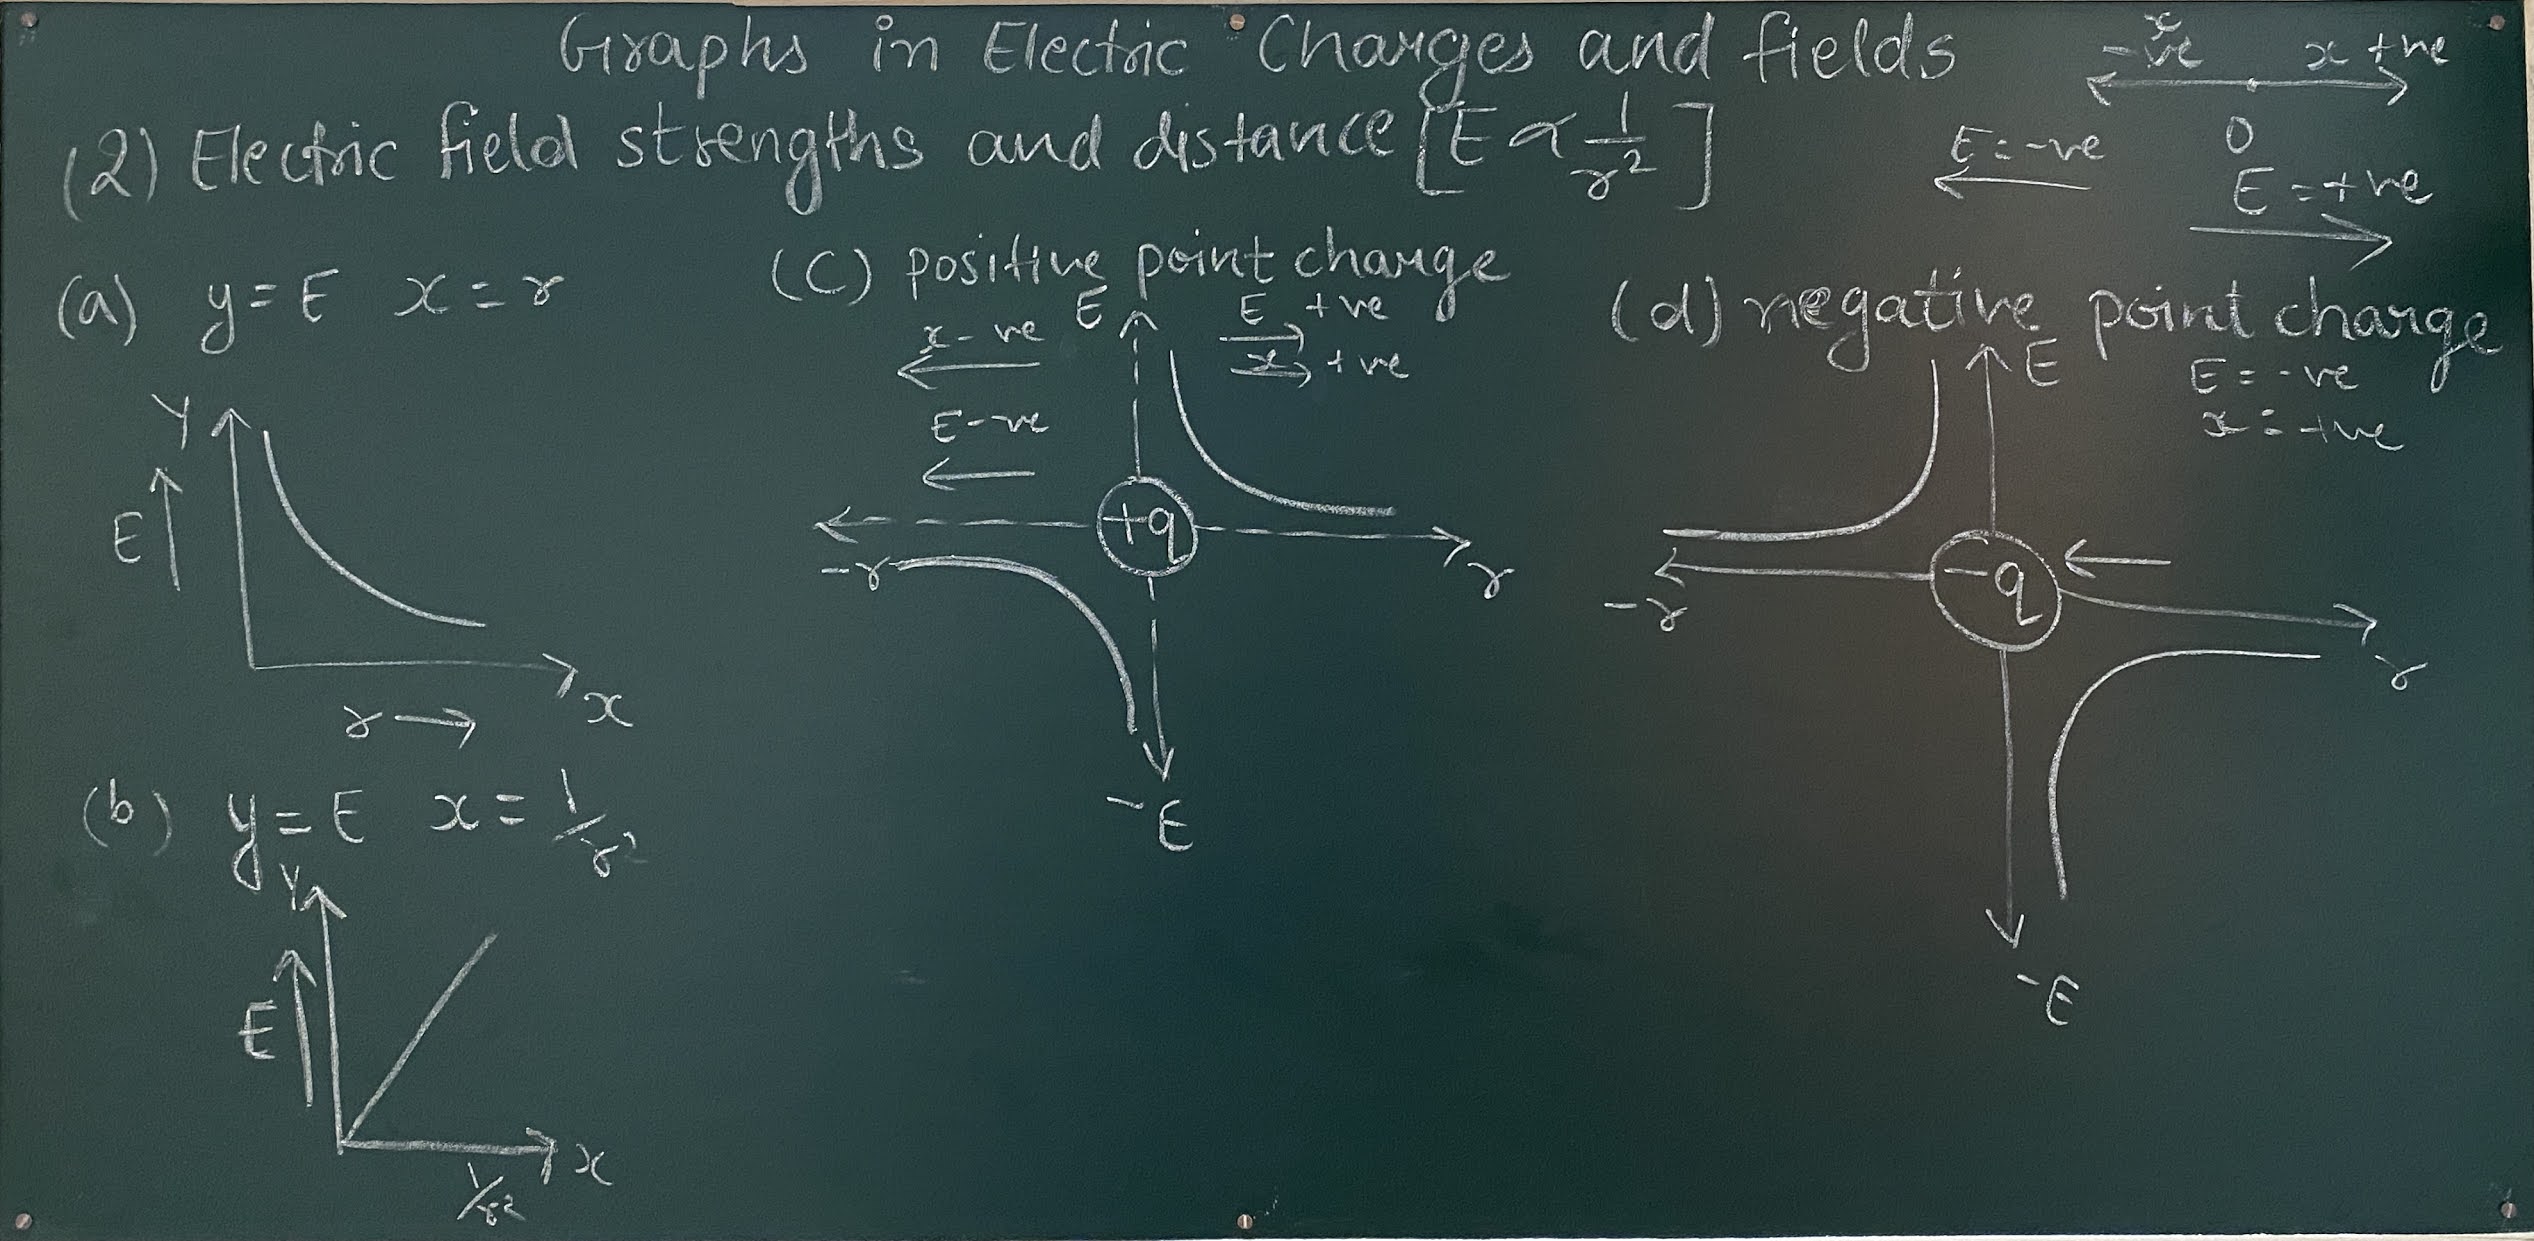 Graphs in Electric Charges and fields
-ve x x +ve
0
(2) Electric field strengths and distance [E ∝ 1/r²]
E = -ve
E = +ve
(a) y = E x = r
Y
E
r
x
(b) y = E x = 1/r²
Y
E
x
1/r²
(C) positive point charge
E
x - ve
E - ve
E +ve
x +ve
+q
-r
r
-E
(d) negative point charge
E
E = -ve
x = +ve
-q
-r
r
-E